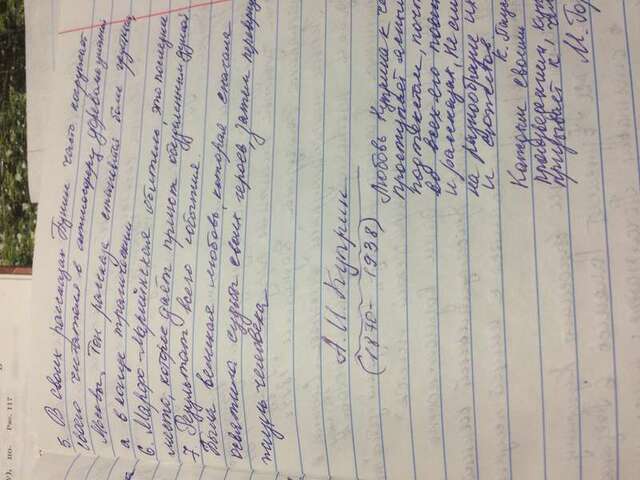 ), по- Рис. 117
5. В своих рассказах Бунин часто погружает
своего читателя в атмосферу дореволюционной
Москвы. Тон рассказа становится более грустным,
а в конце трагическим
6. Марфо-Марьинская обитель, это последнее
место, которое даёт приют душой
7 Результат всего события.
Была великая любовь, которая сначала
осветила судьбы своих героев, затем переверну
жизнь человека
А. И. Куприн
(1870 - 1938)
Любовь Куприна к че
проступает ясны
подтекстом, почт
во всех его повес
и рассказах, не см
на разнообразие их
и сюжетов.
К. Паус
Каждым своим
произведением, куп
призывает к
М. Гор